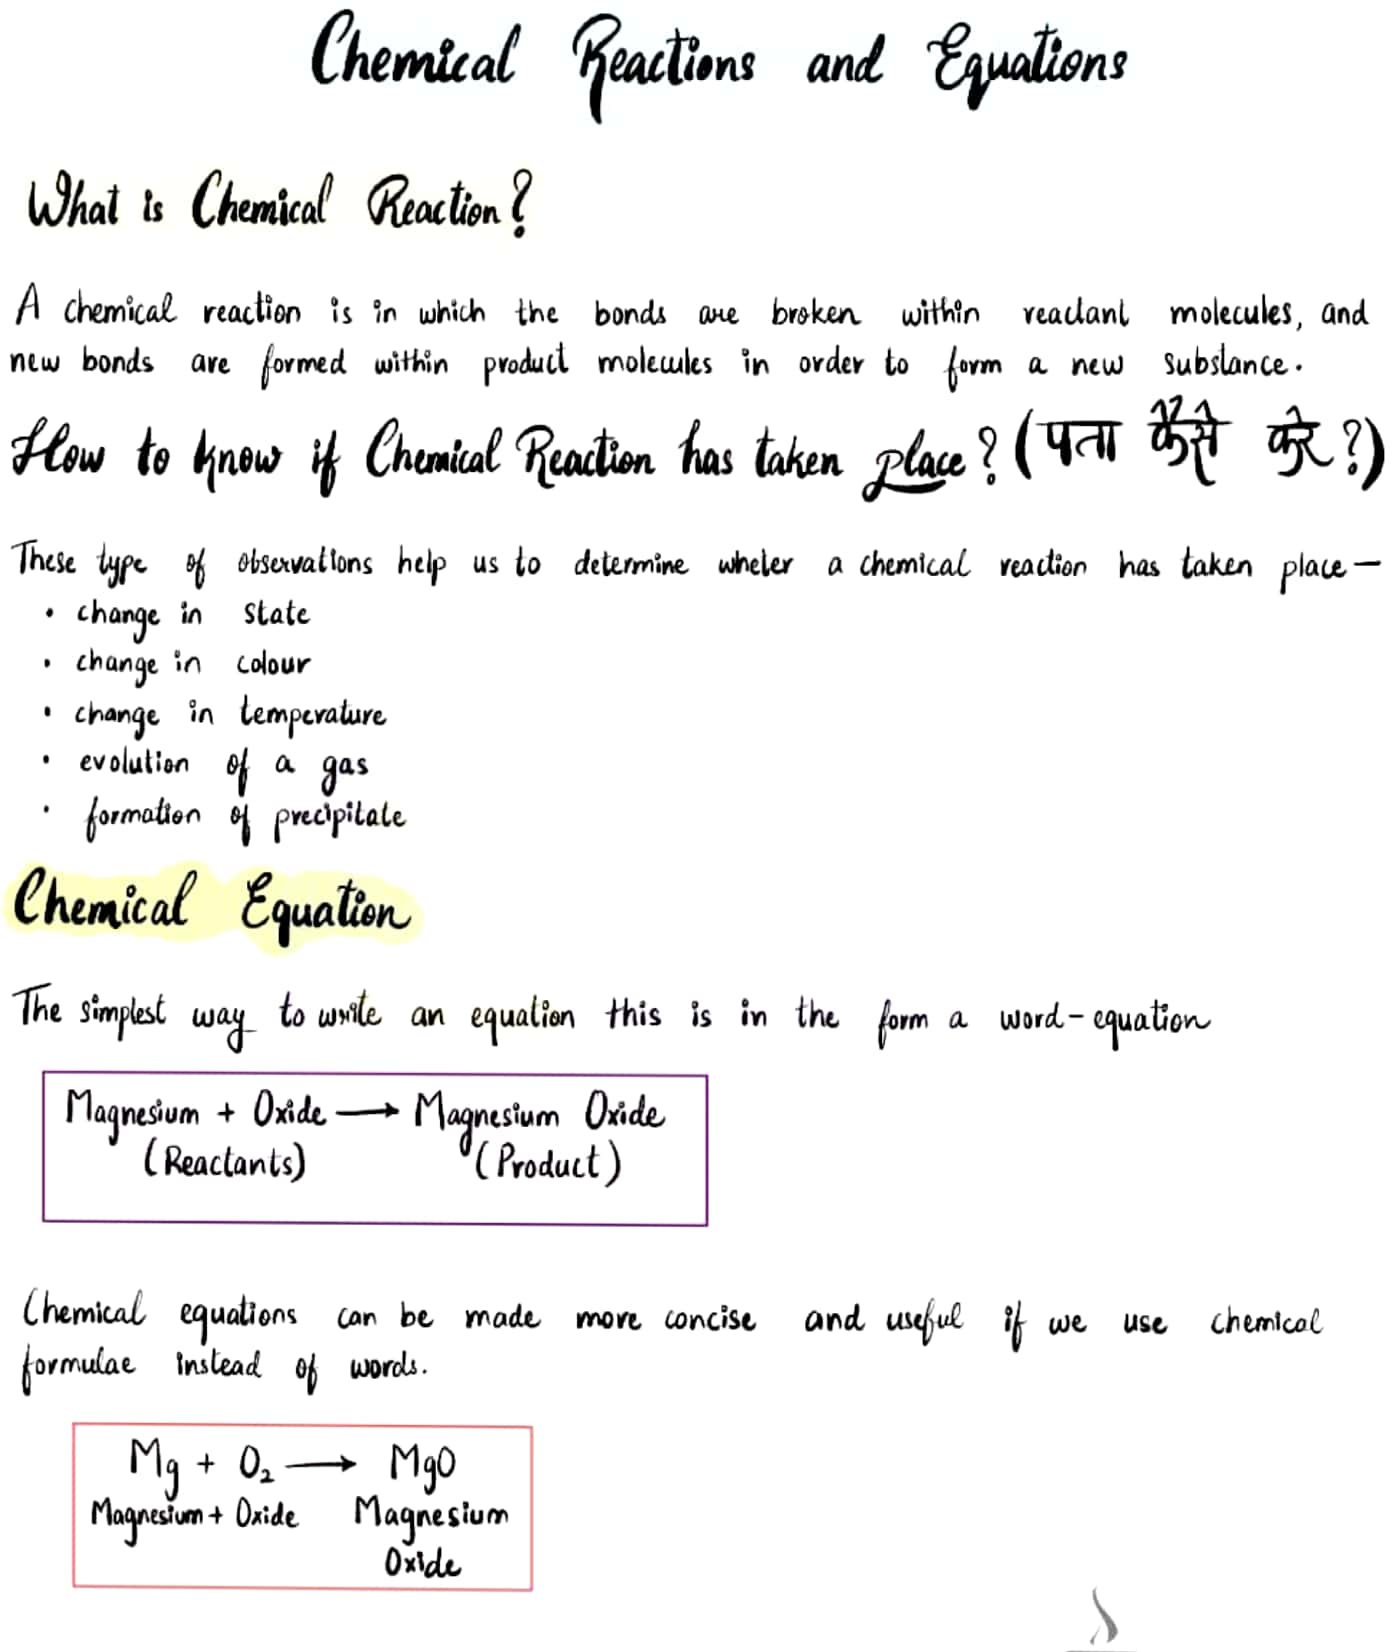 Chemical Reactions and Equations
What is Chemical Reaction?
A chemical reaction is in which the bonds are broken within reactant molecules, and
new bonds are formed within product molecules in order to form a new substance.
How to know if Chemical Reaction has taken place? (पता कैसे करे ?)
These type of observations help us to determine wheter a chemical reaction has taken place —
• change in state
• change in colour
• change in temperature
• evolution of a gas
• formation of precipitate
Chemical Equation
The simplest way to write an equation this is in the form a word-equation
Magnesium + Oxide ⟶ Magnesium Oxide
(Reactants) (Product)
Chemical equations can be made more concise and useful if we use chemical
formulae instead of words.
Mg + O₂ ⟶ MgO
Magnesium + Oxide Magnesium
Oxide